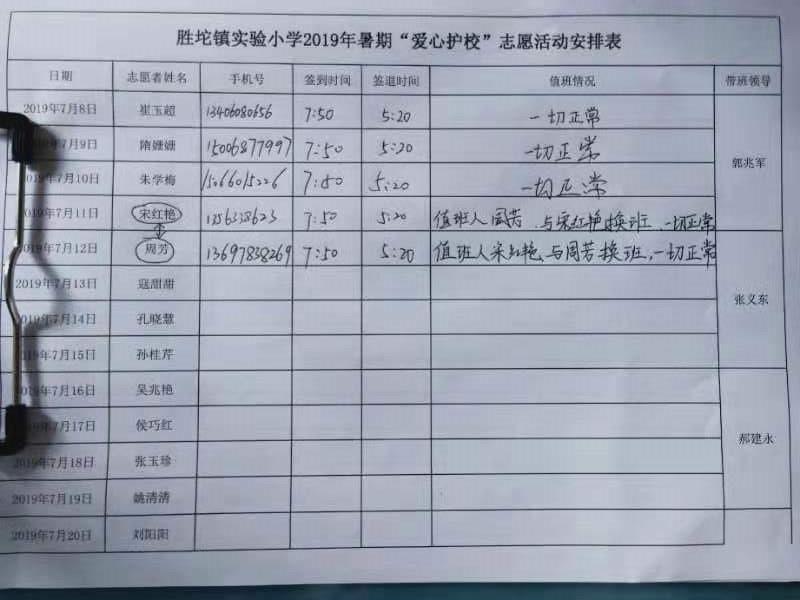 胜坨镇实验小学2019年暑期“爱心护校”志愿活动安排表
日期 志愿者姓名 手机号 签到时间 签退时间 值班情况 带班领导
2019年7月8日 崔玉超 13406080656 7:50 5:20 一切正常
2019年7月9日 隋姗姗 15006877997 7:50 5:20 一切正常 郭兆军
2019年7月10日 朱学梅 15066015226 7:50 5:20 一切正常
2019年7月11日 宋红艳 1356338623 7:50 5:20 值班人周芳、与宋红艳换班、一切正常
2019年7月12日 周芳 13697838269 7:50 5:20 值班人宋红艳、与周芳换班,一切正常
2019年7月13日 寇甜甜 张义东
2019年7月14日 孔晓慧
2019年7月15日 孙桂芹
2019年7月16日 吴兆艳
2019年7月17日 侯巧红 郝建永
2019年7月18日 张玉珍
2019年7月19日 姚清清
2019年7月20日 刘阳阳